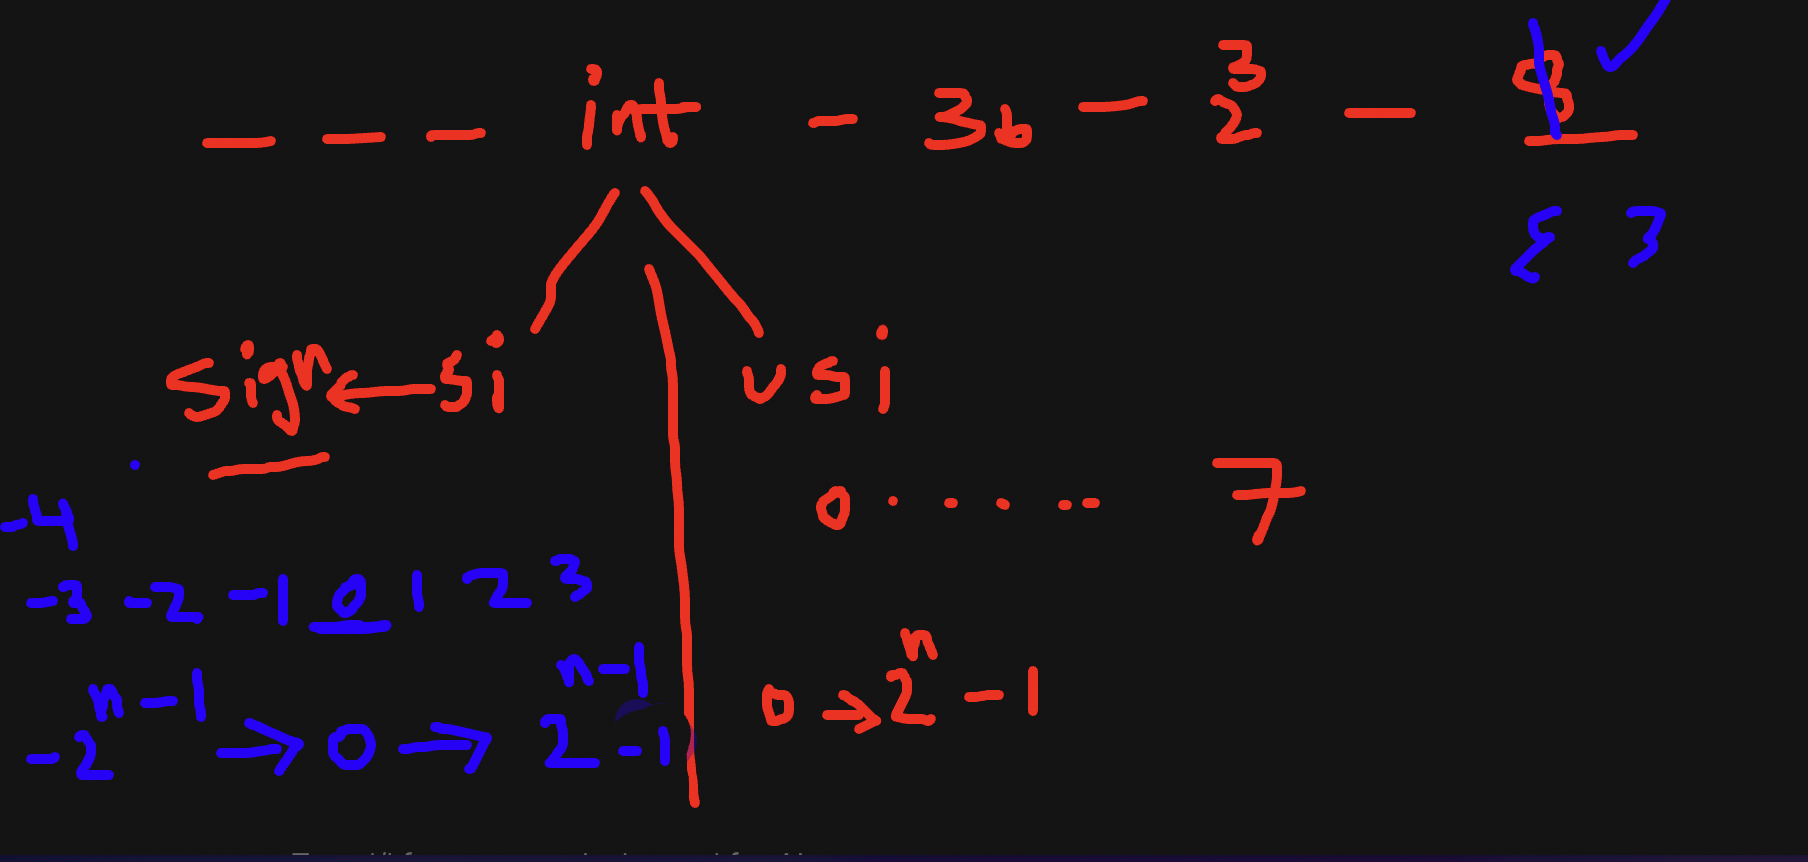 _ _ _ int - 3b - 2^3 - 8
{ }
sign ← si
usi
0 . . . . - 7
-4
-3 -2 -1 0 1 2 3
-2^n-1 → 0 → 2^n-1 - 1
0 → 2^n - 1